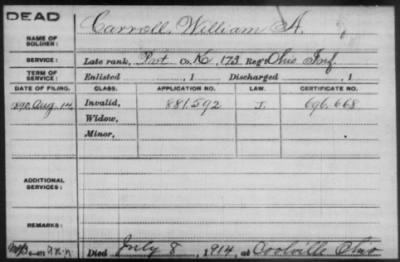 DEAD
NAME OF SOLDIER: Carroll, William A.
SERVICE: Late rank, Pvt Co. K, 173 Reg't Ohio Inf.
TERM OF SERVICE: Enlisted , 1 Discharged , 1
DATE OF FILING. CLASS. APPLICATION NO. LAW. CERTIFICATE NO.
1890 Aug. 14 Invalid, 881.592 J. 696.668
Widow,
Minor,
ADDITIONAL SERVICES:
REMARKS:
Died July 8, 1914, at Coolville Ohio